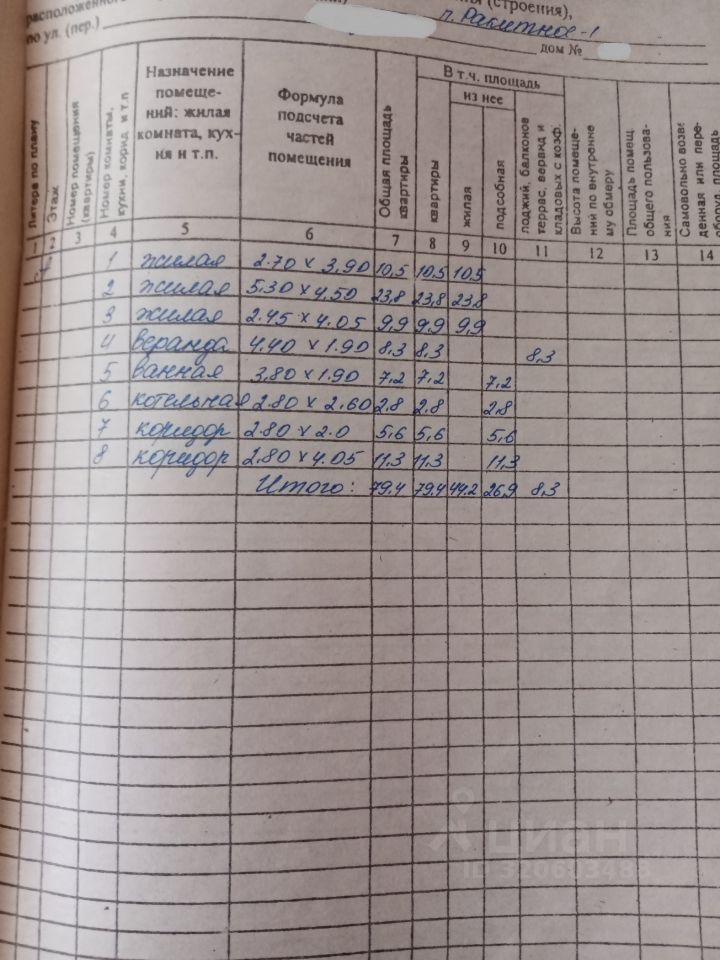 расположенного (строения),
п. Ракитное-1
по ул. (пер.) дом №
Литера по плану
Этаж
Номер помещения (квартиры)
Номер комнаты, кухни, корид. и т.п
Назначение помеще-
ний: жилая
комната, кух-
ня и т.п.
Формула
подсчета
частей
помещения
Общая площадь квартиры
В т.ч. площадь
из нее
квартиры
жилая
подсобная
лоджий, балконов террас, веранд и кладовых с коэф.
Высота помеще-
ний по внутренне
му обмеру
Площадь помещ.
общего пользова-
ния
Самовольно возве
денная или пере-
оборуд. площадь
1 2 3 4 5 6 7 8 9 10 11 12 13 14
1 жилая 2.70 x 3,90 10,5 10,5 10,5
2 жилая 5,30 x 4,50 23,8 23,8 23,8
3 жилая 2.45 x 4.05 9,9 9,9 9,9
4 веранда 4.40 x 1.90 8,3 8,3 8,3
5 ванная 3,80 x 1.90 7,2 7,2 7,2
6 котельная 2.80 x 2.60 2,8 2,8 2,8
7 коридор 2.80 x 2.0 5,6 5,6 5,6
8 коридор 2,80 x 4.05 11,3 11,3 11,3
Итого: 79,4 79,4 44,2 26,9 8,3
циан
ID 320683488